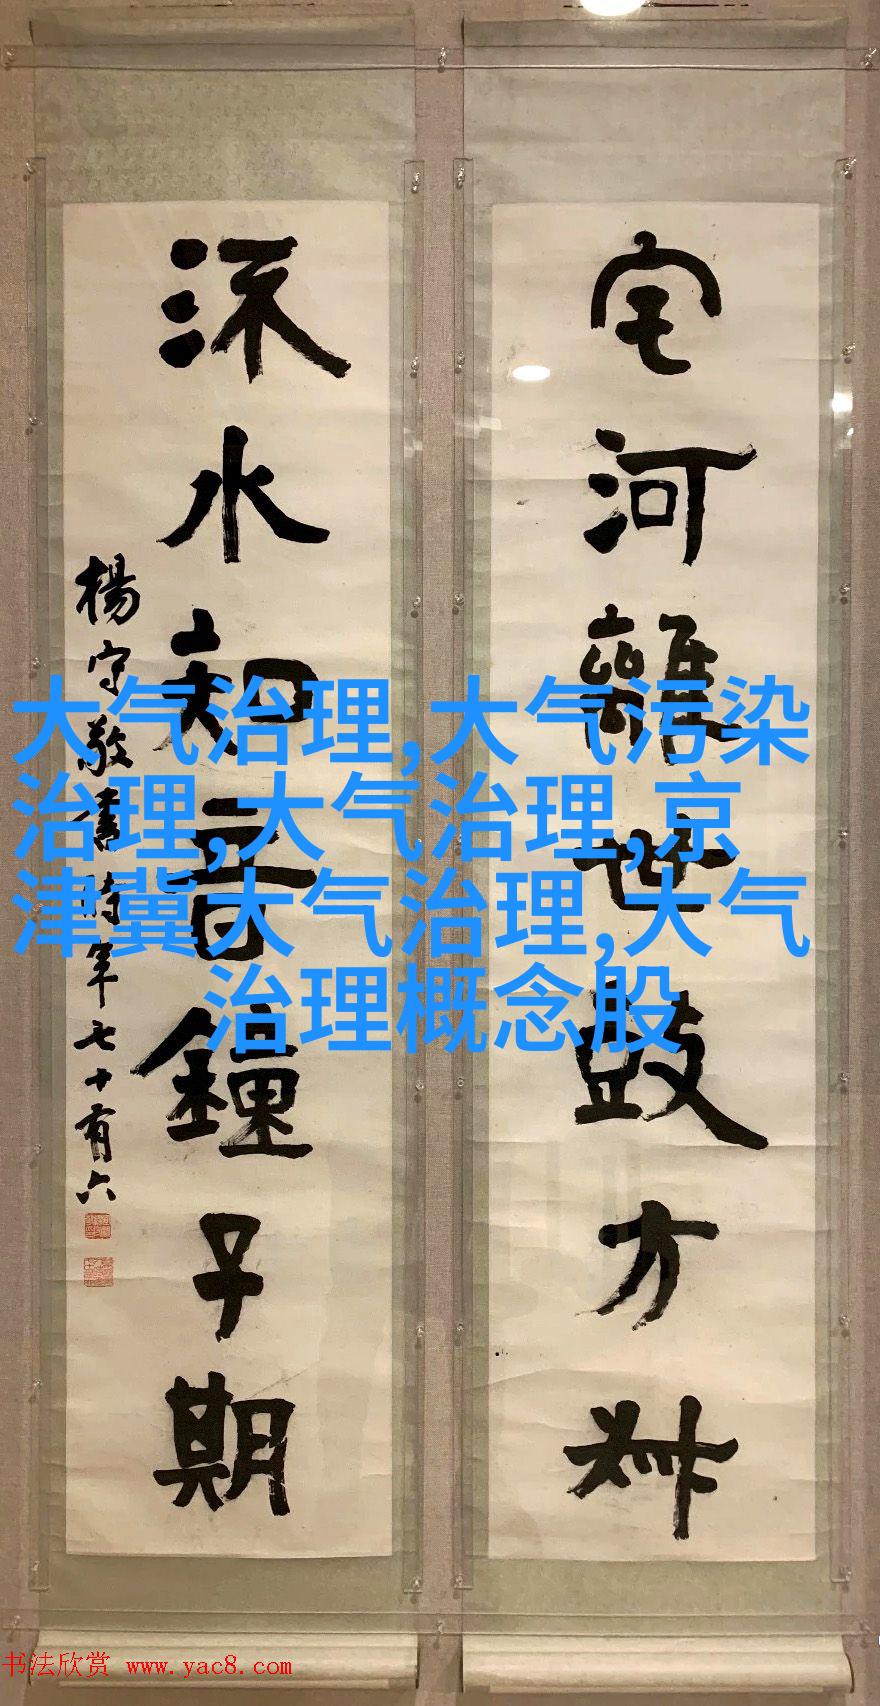 宅河離世鼓方叔
流水知音鐘子期
楊守敬書時年七十有六
大气治理,大气污染
治理,大气治理,京
津冀大气治理,大气
治理概念股
书法欣赏 www.yac8.com